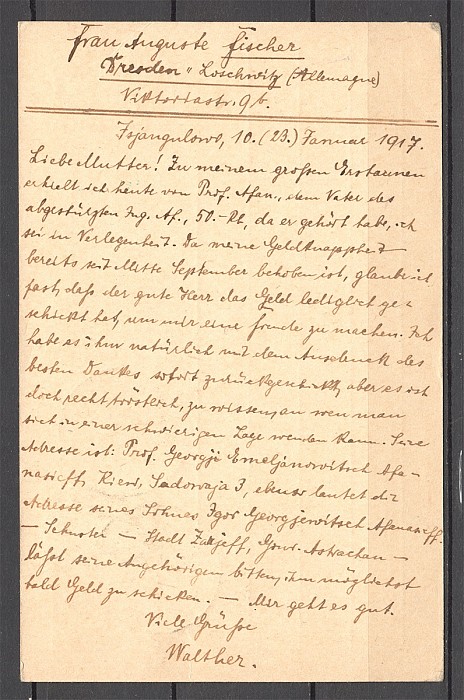 Frau Auguste Fischer
Dresden - Loschwitz (Allemagne)
Viktoriastr. 9b.
10. (23.) Januar 1917.
Liebe Mutter! Zu meinem großen Erstaunen
erhielt ich heute von Prof. Afan., dem Vater des
abgestürzten Ing. Af., 50.- Rb, da er gehört habe, ich
sei in Verlegenheit. Da meine Geldknappheit
bereits seit Mitte September behoben ist, glaube ich
fast, daß der gute Herr das Geld lediglich ge-
schickt hat, um mir eine Freude zu machen. Ich
habe es ihm natürlich mit dem Ausdruck des
besten Dankes sofort zurückgeschickt, aber es ist
doch recht tröstlich, zu wissen, an wen man
sich in einer schwierigen Lage wenden kann. Seine
Adresse ist: Prof. Georgji Emeljanowitsch Afa-
nasieff, Kiew, Sadowaja 3, ebenso lautet die
Adresse seines Sohnes Igor Georgjewitsch Afanasieff.
— Schuster — Stadt Zareff, Gouv. Astrachan —
läßt seine Angehörigen bitten, ihm möglichst
bald Geld zu schicken. — Mir geht es gut.
Viele Grüße
Walther.